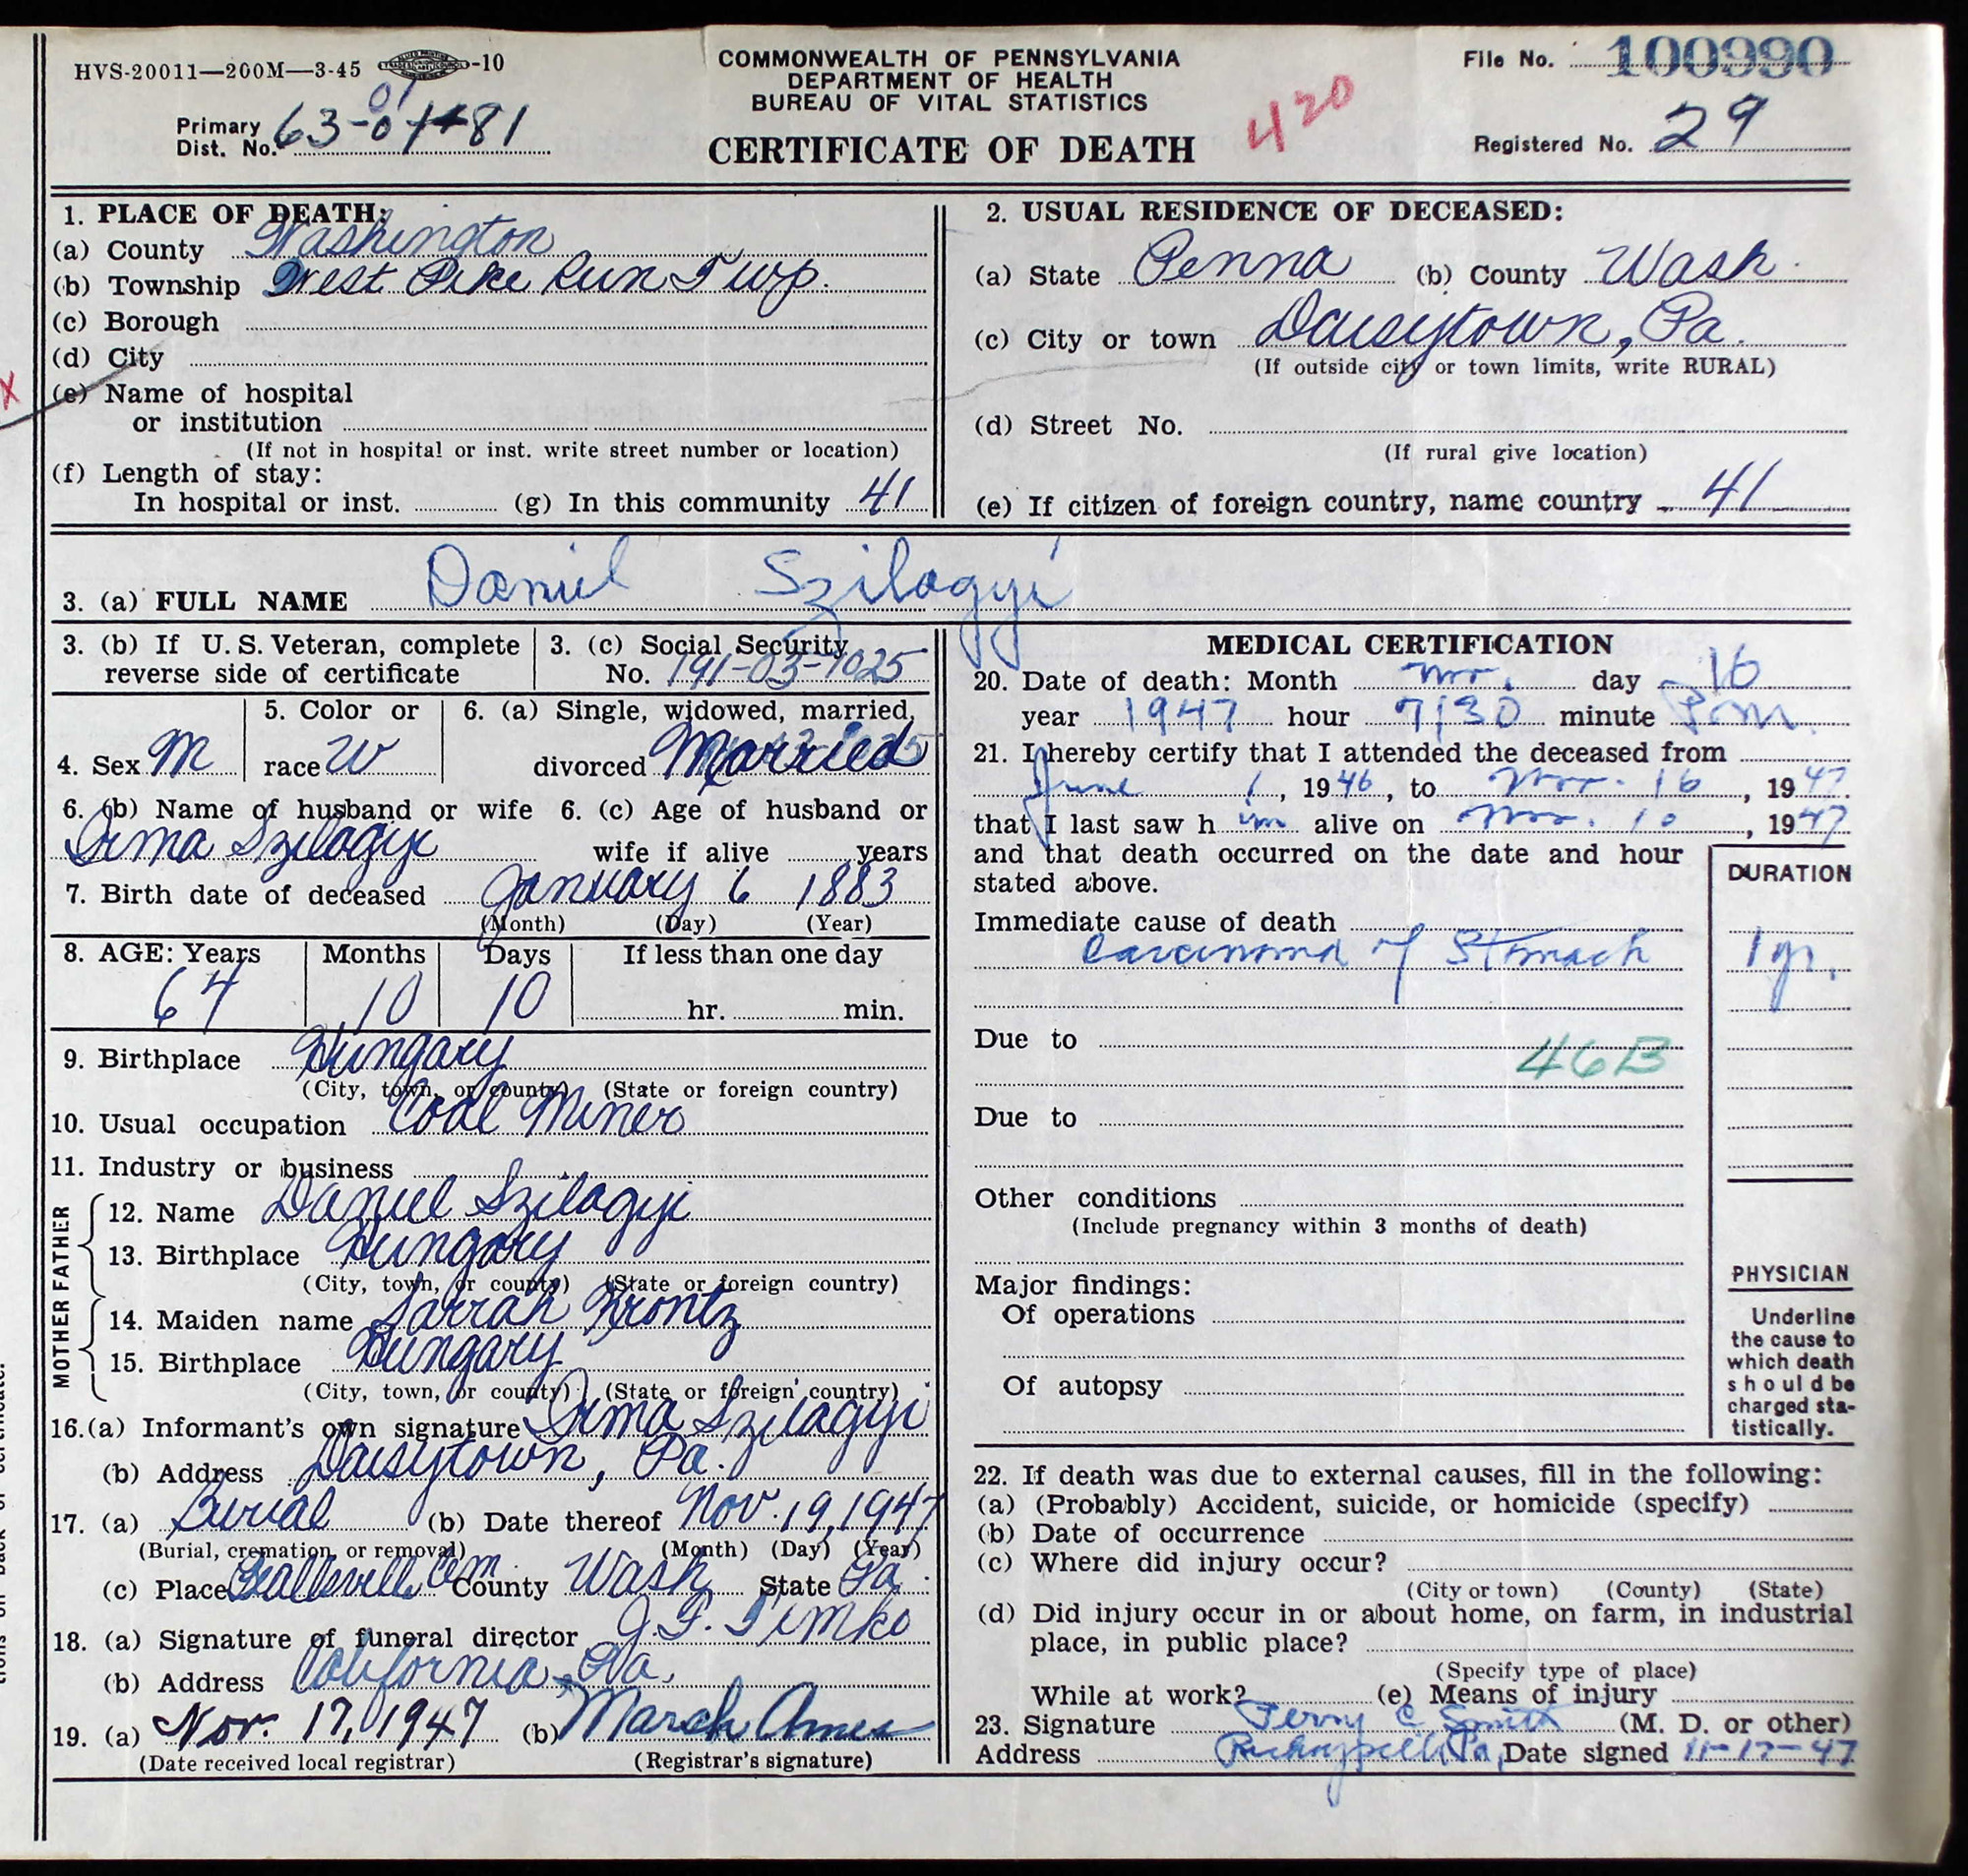 HVS-20011—200M—3-45 -10
COMMONWEALTH OF PENNSYLVANIA
DEPARTMENT OF HEALTH
BUREAU OF VITAL STATISTICS
CERTIFICATE OF DEATH
420
File No. 100990
Primary Dist. No. 63-01-81
Registered No. 29
1. PLACE OF DEATH:
(a) County Washington
(b) Township West Pike Run Twp.
(c) Borough
(d) City
(e) Name of hospital
or institution
(If not in hospital or inst. write street number or location)
(f) Length of stay:
In hospital or inst. (g) In this community 41
2. USUAL RESIDENCE OF DECEASED:
(a) State Penna (b) County Wash.
(c) City or town Daisytown, Pa.
(If outside city or town limits, write RURAL)
(d) Street No.
(If rural give location)
(e) If citizen of foreign country, name country 41
3. (a) FULL NAME Daniel Szilagyi
3. (b) If U. S. Veteran, complete
reverse side of certificate
3. (c) Social Security
No. 191-03-1025
4. Sex M
5. Color or
race W
6. (a) Single, widowed, married,
divorced Married
6. (b) Name of husband or wife 6. (c) Age of husband or
Irma Szilagyi wife if alive years
7. Birth date of deceased January 6 1883
(Month) (Day) (Year)
8. AGE: Years Months Days If less than one day
64 10 10 hr. min.
9. Birthplace Hungary
(City, town, or county) (State or foreign country)
10. Usual occupation Coal Miner
11. Industry or business
FATHER
12. Name Daniel Szilagyi
13. Birthplace Hungary
(City, town, or county) (State or foreign country)
MOTHER
14. Maiden name Sarrah Krontz
15. Birthplace Hungary
(City, town, or county) (State or foreign country)
16.(a) Informant's own signature Irma Szilagyi
(b) Address Daisytown, Pa.
17. (a) Burial (b) Date thereof Nov. 19, 1947
(Burial, cremation, or removal) (Month) (Day) (Year)
(c) Place Beallsville Cem. County Wash State Pa.
18. (a) Signature of funeral director J. F. Timko
(b) Address California, Pa.
19. (a) Nov. 17, 1947 (b) March Ames
(Date received local registrar) (Registrar's signature)
MEDICAL CERTIFICATION
20. Date of death: Month Nov. day 16
year 1947 hour 7:30 minute P.m.
21. I hereby certify that I attended the deceased from
June 1, 1946, to Nov. 16, 1947.
that I last saw h im alive on Nov. 10, 1947
and that death occurred on the date and hour
stated above.
DURATION
Immediate cause of death
Carcinoma of Stomach 1 yr.
Due to
46B
Due to
Other conditions
(Include pregnancy within 3 months of death)
Major findings:
Of operations
Of autopsy
PHYSICIAN
Underline
the cause to
which death
should be
charged sta-
tistically.
22. If death was due to external causes, fill in the following:
(a) (Probably) Accident, suicide, or homicide (specify)
(b) Date of occurrence
(c) Where did injury occur?
(City or town) (County) (State)
(d) Did injury occur in or about home, on farm, in industrial
place, in public place?
(Specify type of place)
While at work? (e) Means of injury
23. Signature Perry C Smith (M. D. or other)
Address Pa, Date signed 11-17-47